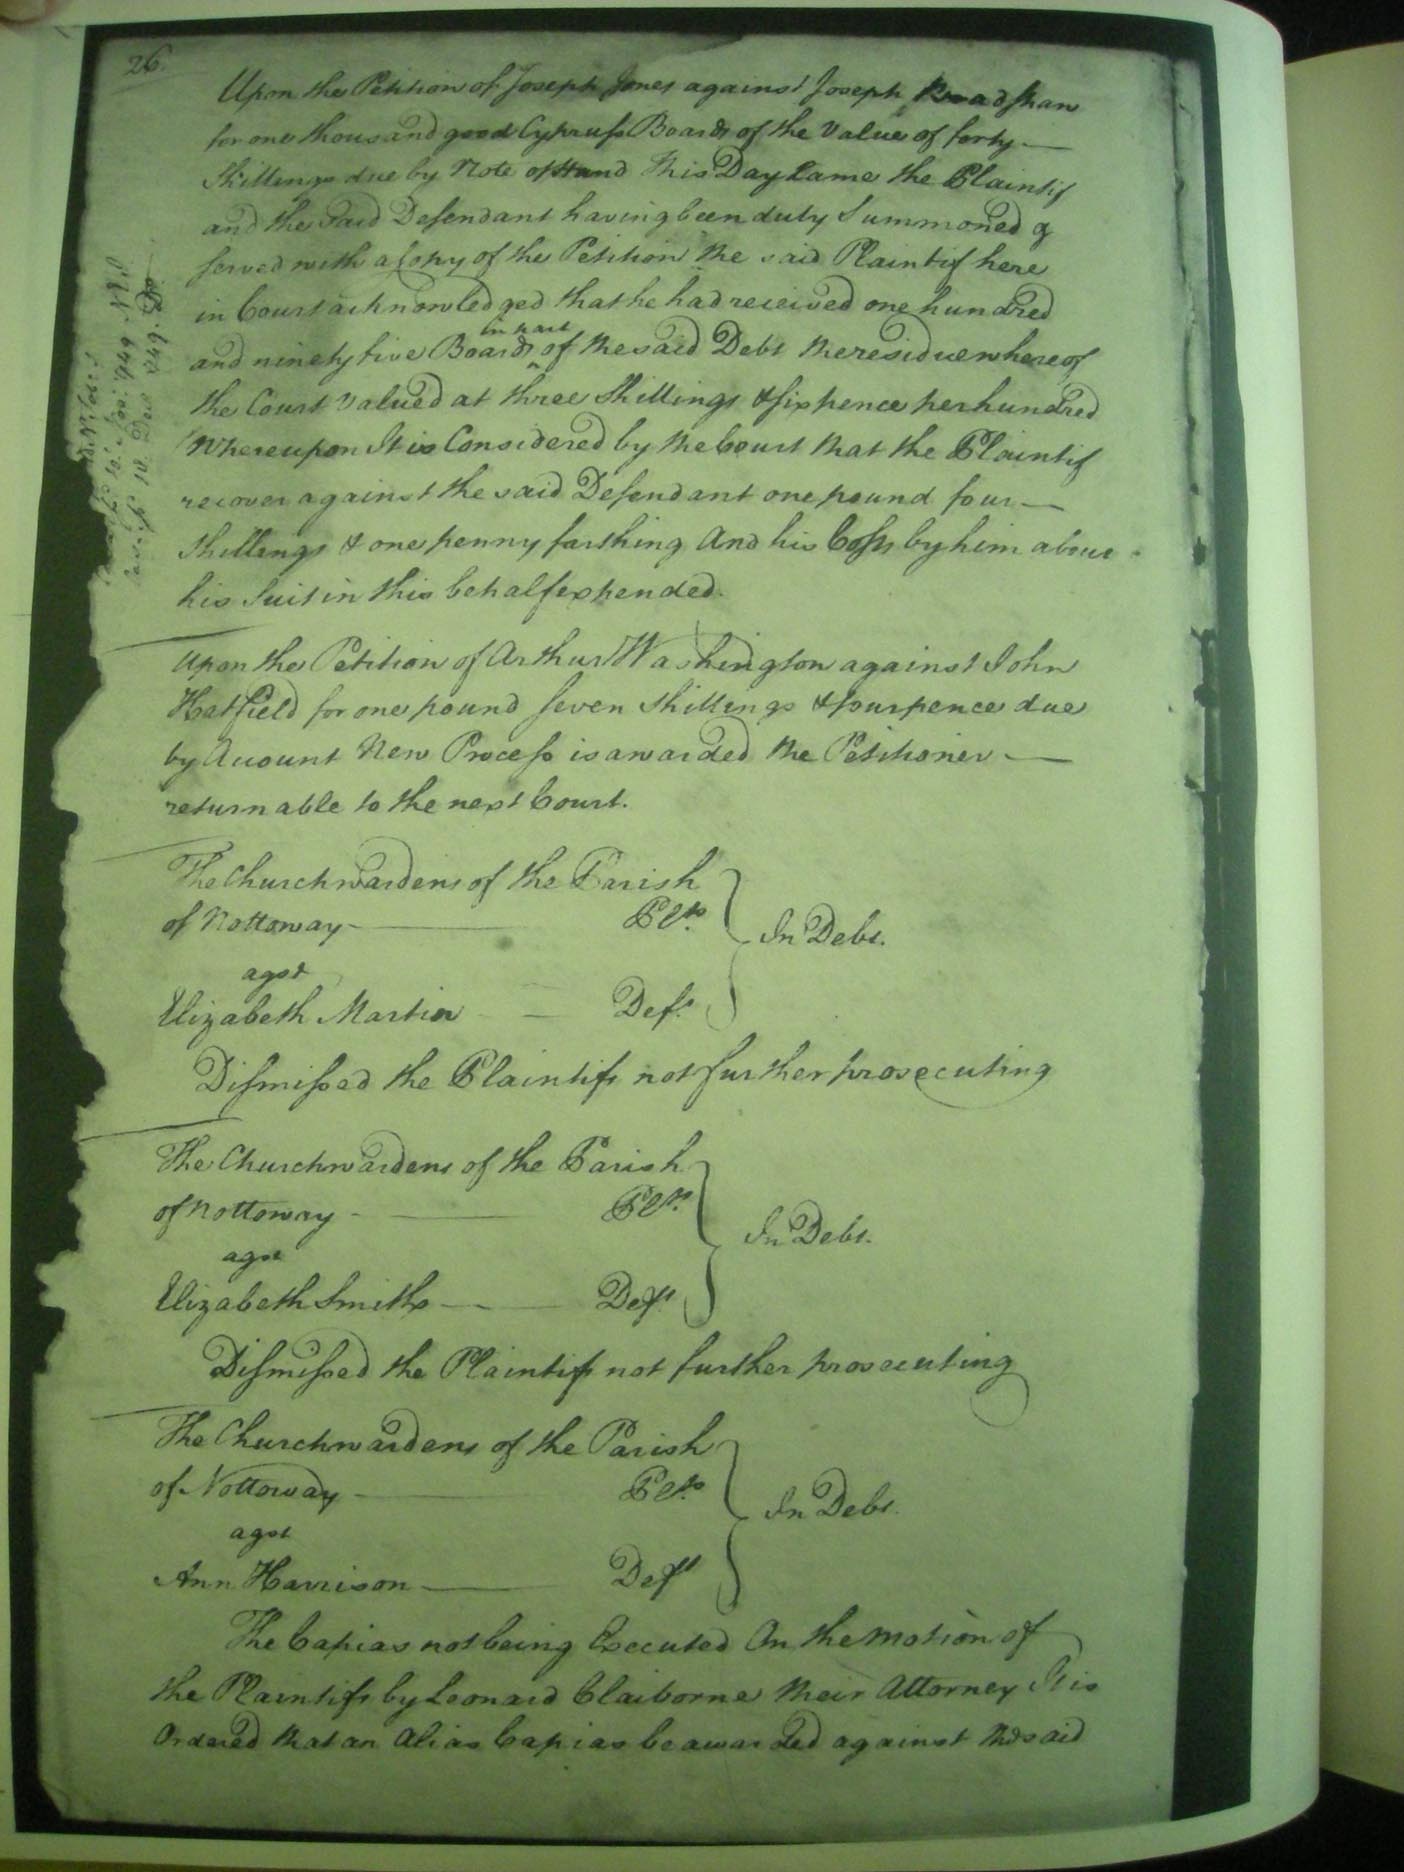 26.
Upon the Petition of Joseph Jones against Joseph Broadshaw
for one thousand good Cypruss Boards of the Value of forty
Shillings due by Note of Hand This Day Came the Plaintif
and the said Defendant having been duly Summoned &
served with a Copy of the Petition the said Plaintif here
in Court acknowledged that he had received one hundred
in part
and ninety five Boards of the said Debt the residue whereof
the Court Valued at three Shillings & sixpence per hundred
Whereupon It is Considered by the Court that the Plaintif
recover against the said Defendant one pound four
Shillings & one penny farthing And his Costs by him about
his Suit in this behalf expended.
Upon the Petition of Arthur Washington against John
Hatfield for one pound seven Shillings & fourpence due
by Account New Process is awarded the Petitioner
returnable to the next Court.
The Churchwardens of the Parish
of Nottoway Plts.
In Debt.
agst
Elizabeth Martin Deft.
Dismissed the Plaintifs not further prosecuting
The Churchwardens of the Parish
of Nottoway Plts.
In Debt.
agst
Elizabeth Smith Deft.
Dismissed the Plaintifs not further prosecuting
The Churchwardens of the Parish
of Nottoway Plts.
In Debt.
agst
Ann Harrison Deft
The Capias not being Executed On the motion of
the Plaintifs by Leonard Claiborne their Attorney It is
Ordered that an Alias Capias be awarded against the said